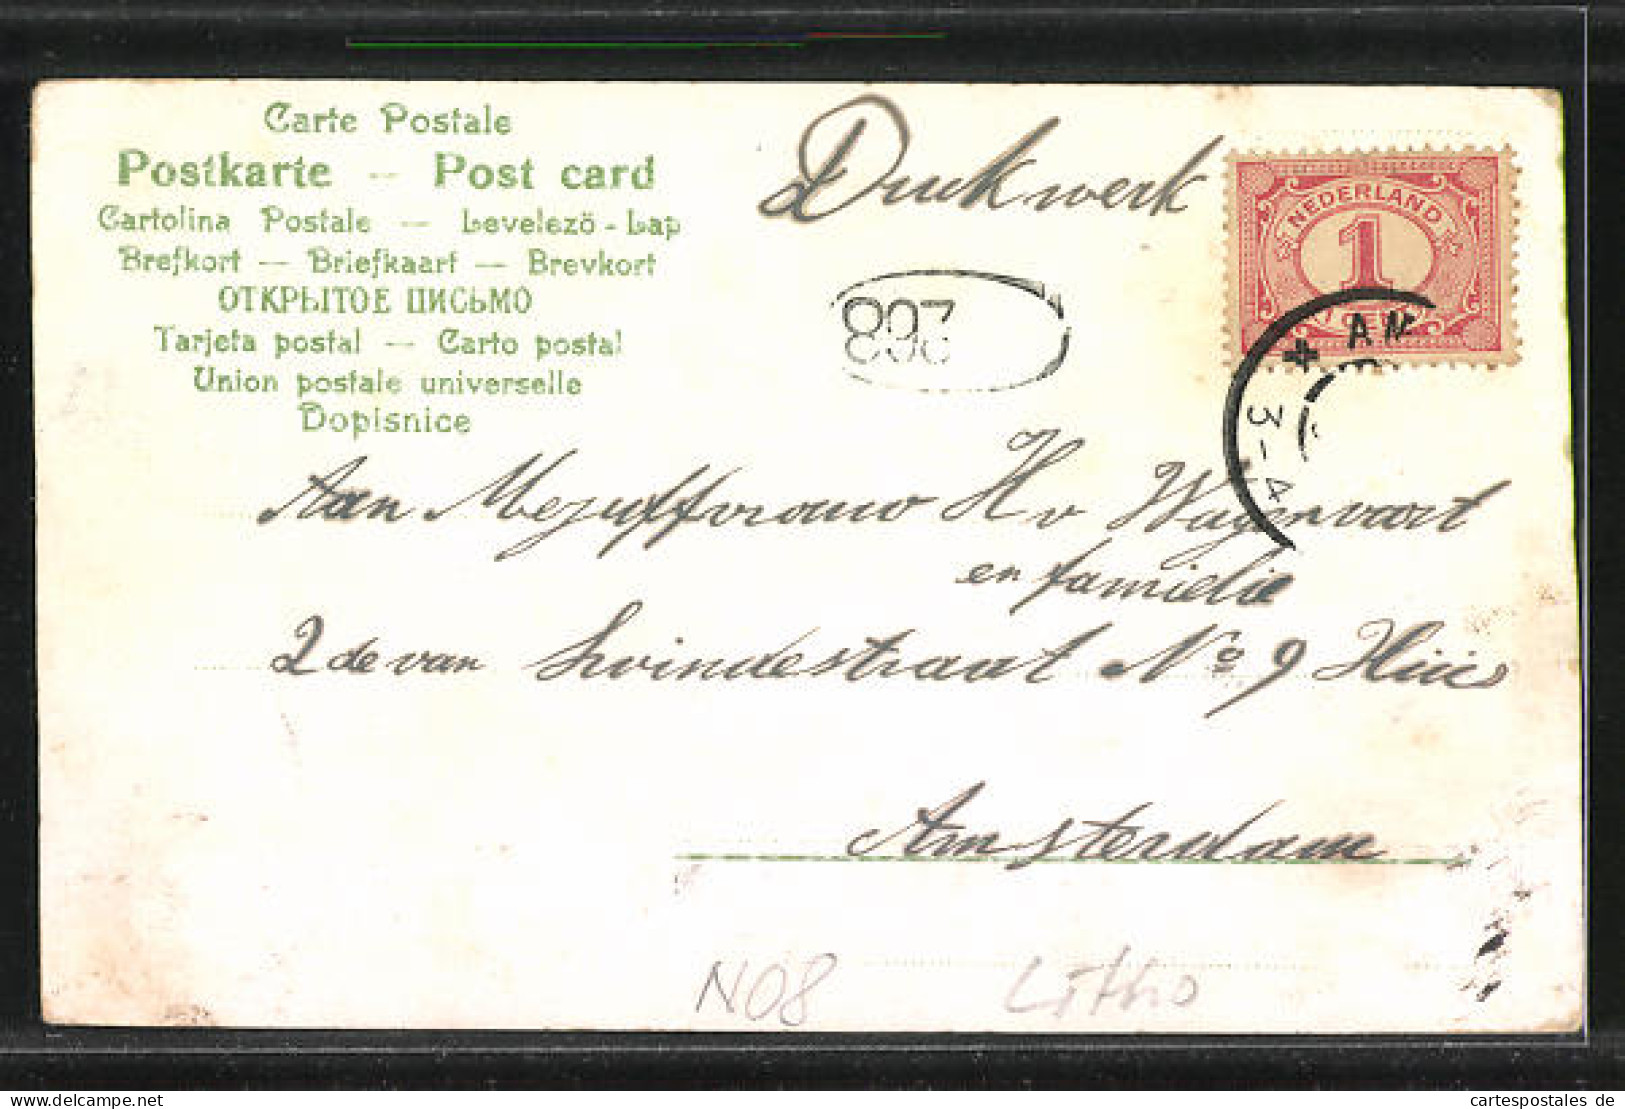 Carte Postale
Postkarte — Post card
Cartolina Postale — Levelezö-Lap
Brefkort — Briefkaart — Brevkort
ОТКРЫТОЕ ПИСЬМО
Tarjeta postal — Carto postal
Union postale universelle
Dopisnice
Drukwerk
NEDERLAND
1
CENT
AM
3-4
Aan Mejuffvrouw H v Wagenvoort
en familie
2de van Swindestraat No 9 Huis
Amsterdam
N08 Litho
cartespostales de